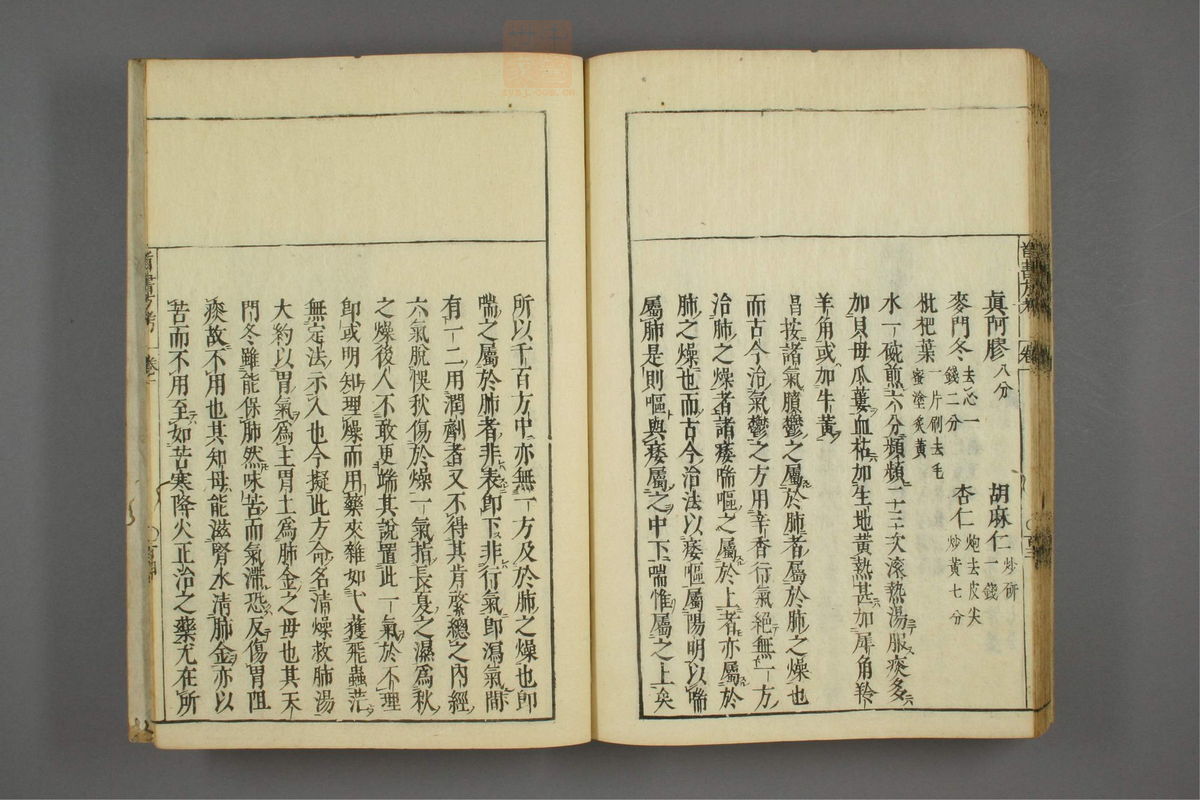 眞阿膠八分　胡麻仁炒研一錢
麥門冬去心一錢二分　杏仁炮去皮尖炒黃七分
枇杷葉一片刷去毛蜜塗炙黃
水一碗煎六分頻頻二三次滚熱湯服痰多
加貝母瓜蔞血枯加生地黃熱甚加犀角羚
羊角或加牛黃
昌按諸氣膹鬱之屬於肺者屬於肺之燥也
而古今治氣鬱之方用辛香行氣絕無一方
治肺之燥者諸痿喘嘔之屬於上者亦屬於
肺之燥也而古今治法以痿嘔屬陽明以喘
屬肺是則嘔與痿屬之中下喘惟屬之上矣
所以千百方中亦無一方及於肺之燥也卽
喘之屬於肺者非表卽下非行氣卽瀉氣間
有一二用潤劑者又不得其肯綮總之內經
六氣脫悞秋傷於燥一氣指長夏之濕爲秋
之燥後人不敢更端其說置此一氣於不理
卽或明知理燥而用藥夾雜如弋獲飛蟲茫
無定法示人也今擬此方命名淸燥救肺湯
大約以胃氣爲主胃土爲肺金之母也其天
門冬雖能保肺然味苦而氣滯恐反傷胃阻
痰故不用也其知母能滋腎水淸肺金亦以
苦而不用至如苦寒降火正治之藥尤在所